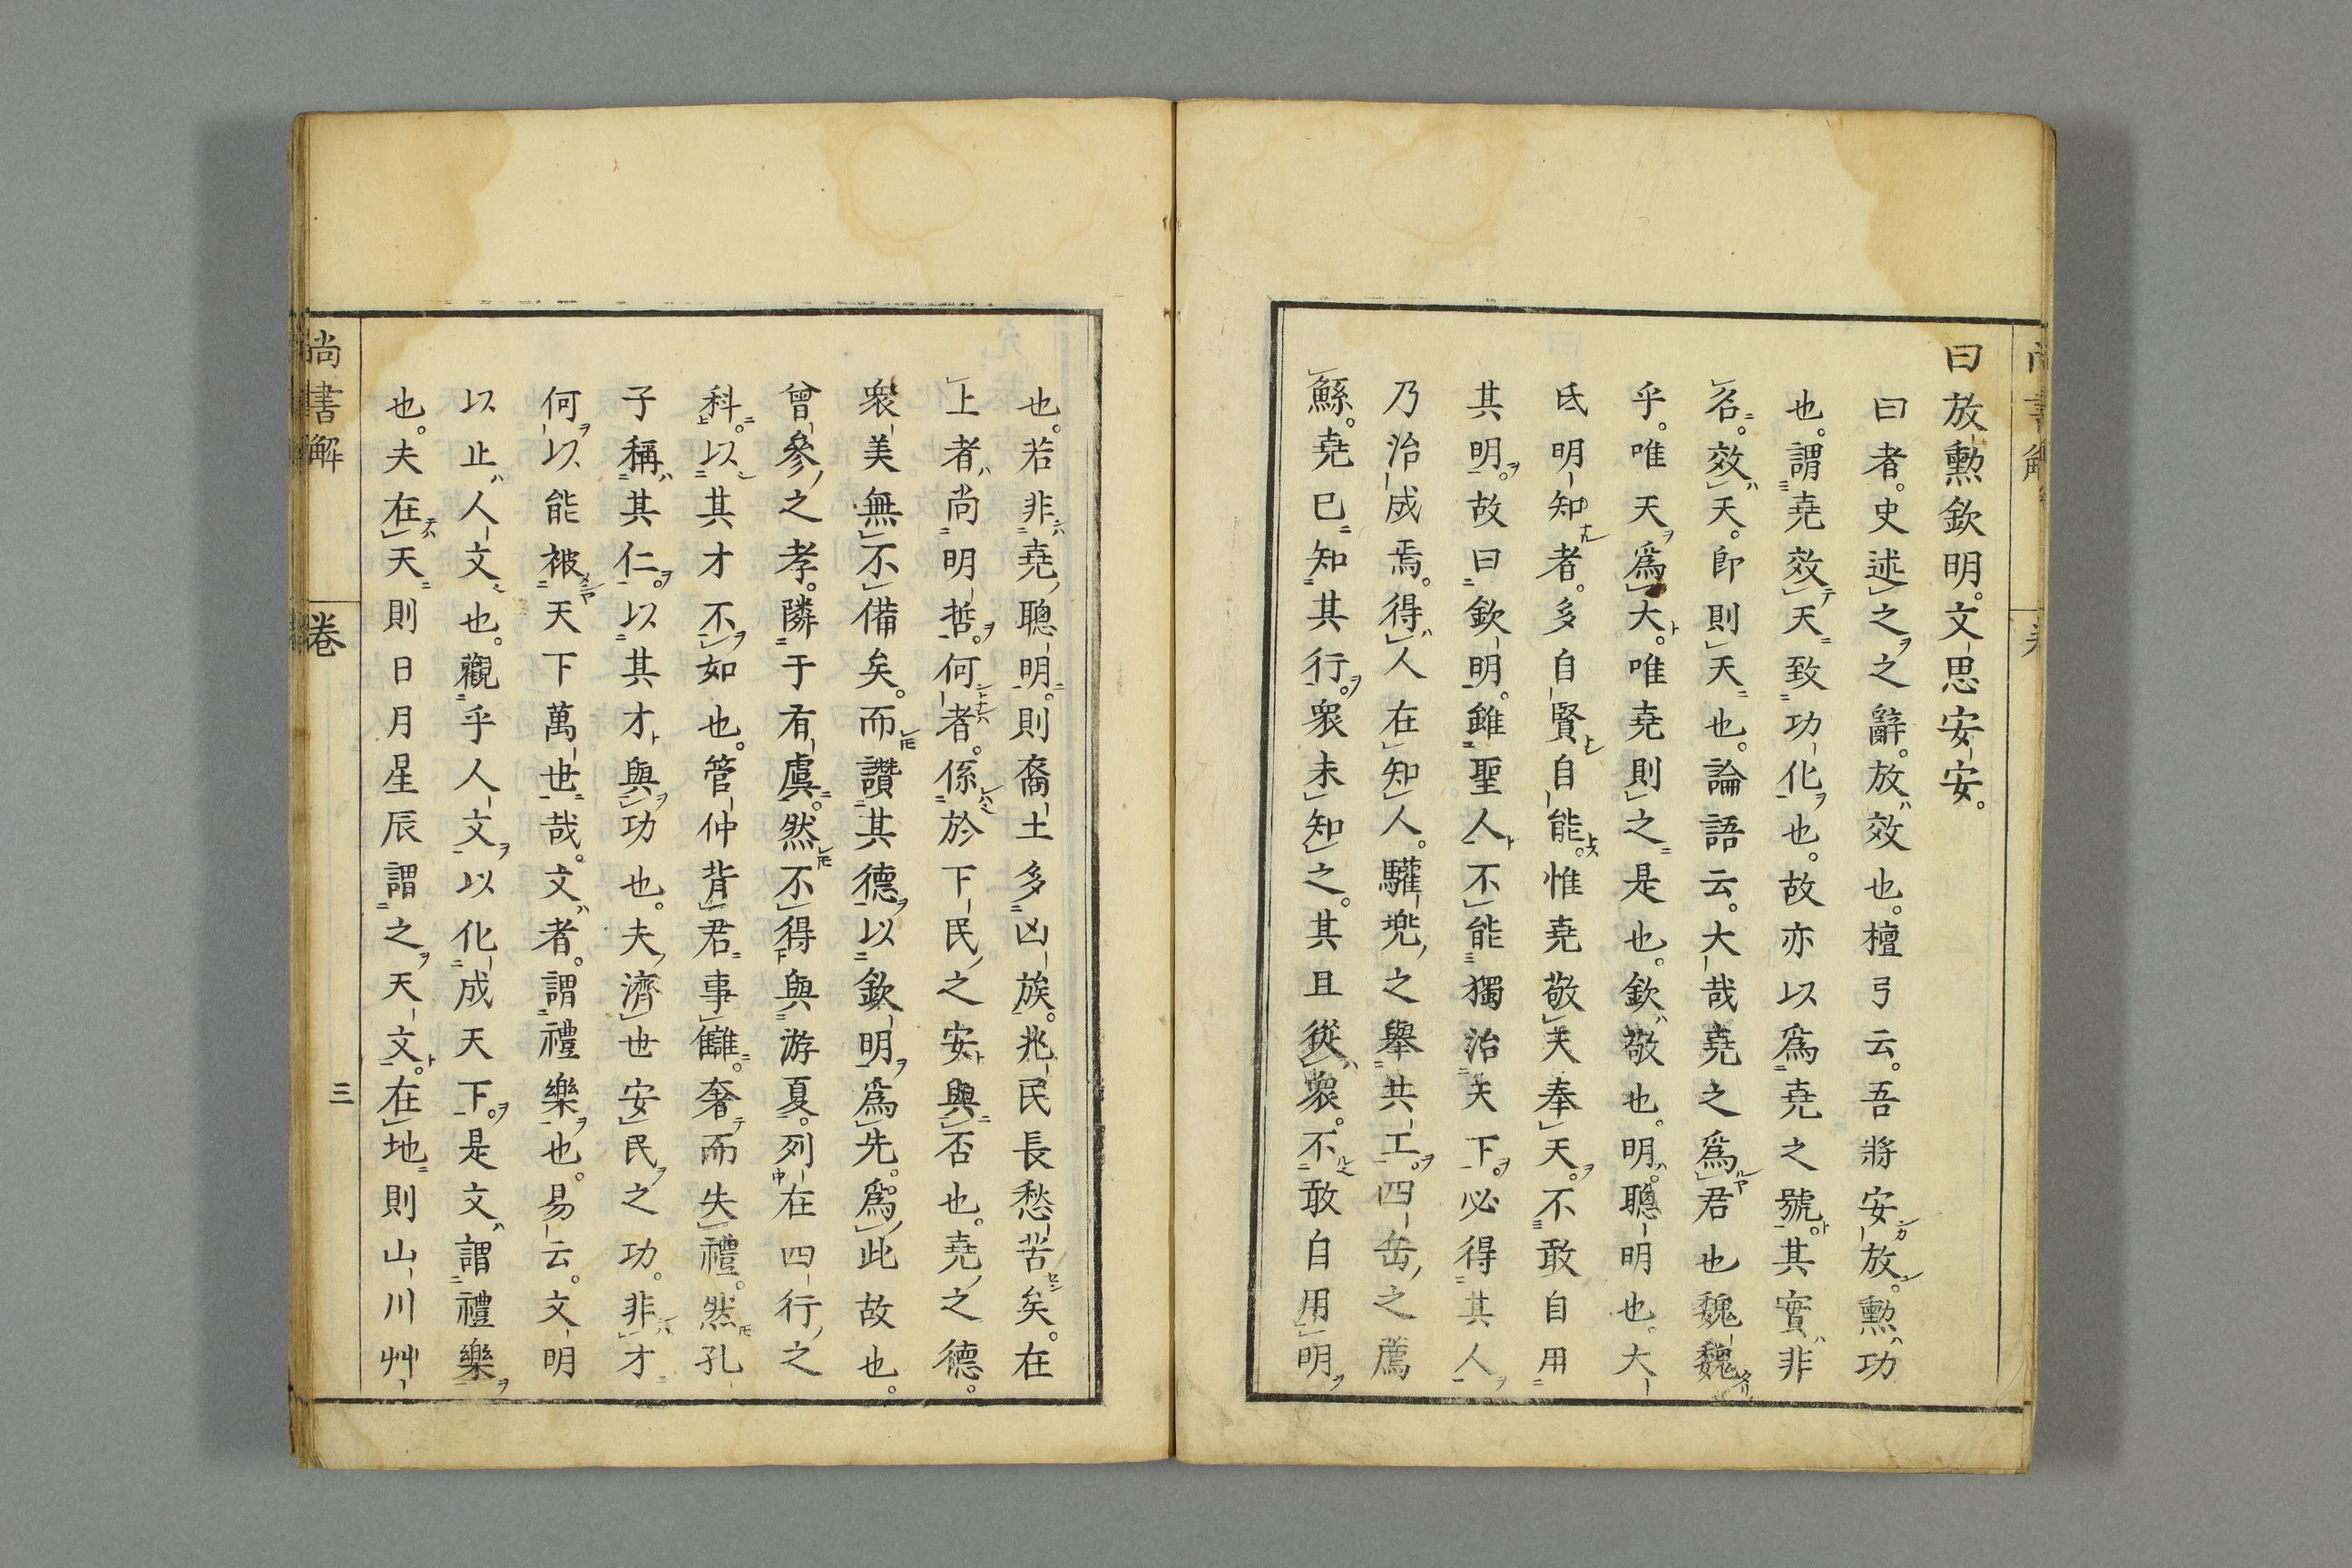 曰放勲欽明。文思安安。
曰者。史述之之辭。放效也。檀弓云。吾將安放。勲功
也。謂堯效天致功化也。故亦以爲堯之號。其實非
名。效天。卽則天也。論語云。大哉堯之爲君也魏魏
乎。唯天爲大。唯堯則之是也。欽敬也。明。聰明也。大
氐明知者。多自賢自能。惟堯敬天奉天。不敢自用
其明。故曰欽明。雖聖人不能獨治天下。必得其人
乃治成焉。得人在知人。驩兜之舉共工。四岳之薦
鯀。堯已知其行。衆未知之。其且從衆。不敢自用明
也。若非堯聰明。則裔土多凶族。兆民長愁苦矣。在
上者尚明哲。何者。係於下民之安與否也。堯之德。
衆美無不備矣。而讚其德以欽明爲先。爲此故也。
曾參之孝。隣于有虞。然不得與游夏。列在四行之
科。以其才不如也。管仲背君事讎。奢而失禮。然孔
子稱其仁。以其才與功也。夫濟世安民之功。非才
何以能被天下萬世哉。文者。謂禮樂也。易云。文明
以止人文也。觀乎人文以化成天下。是文謂禮樂
也。夫在天則日月星辰謂之天文。在地則山川艸
尚書解
卷
三